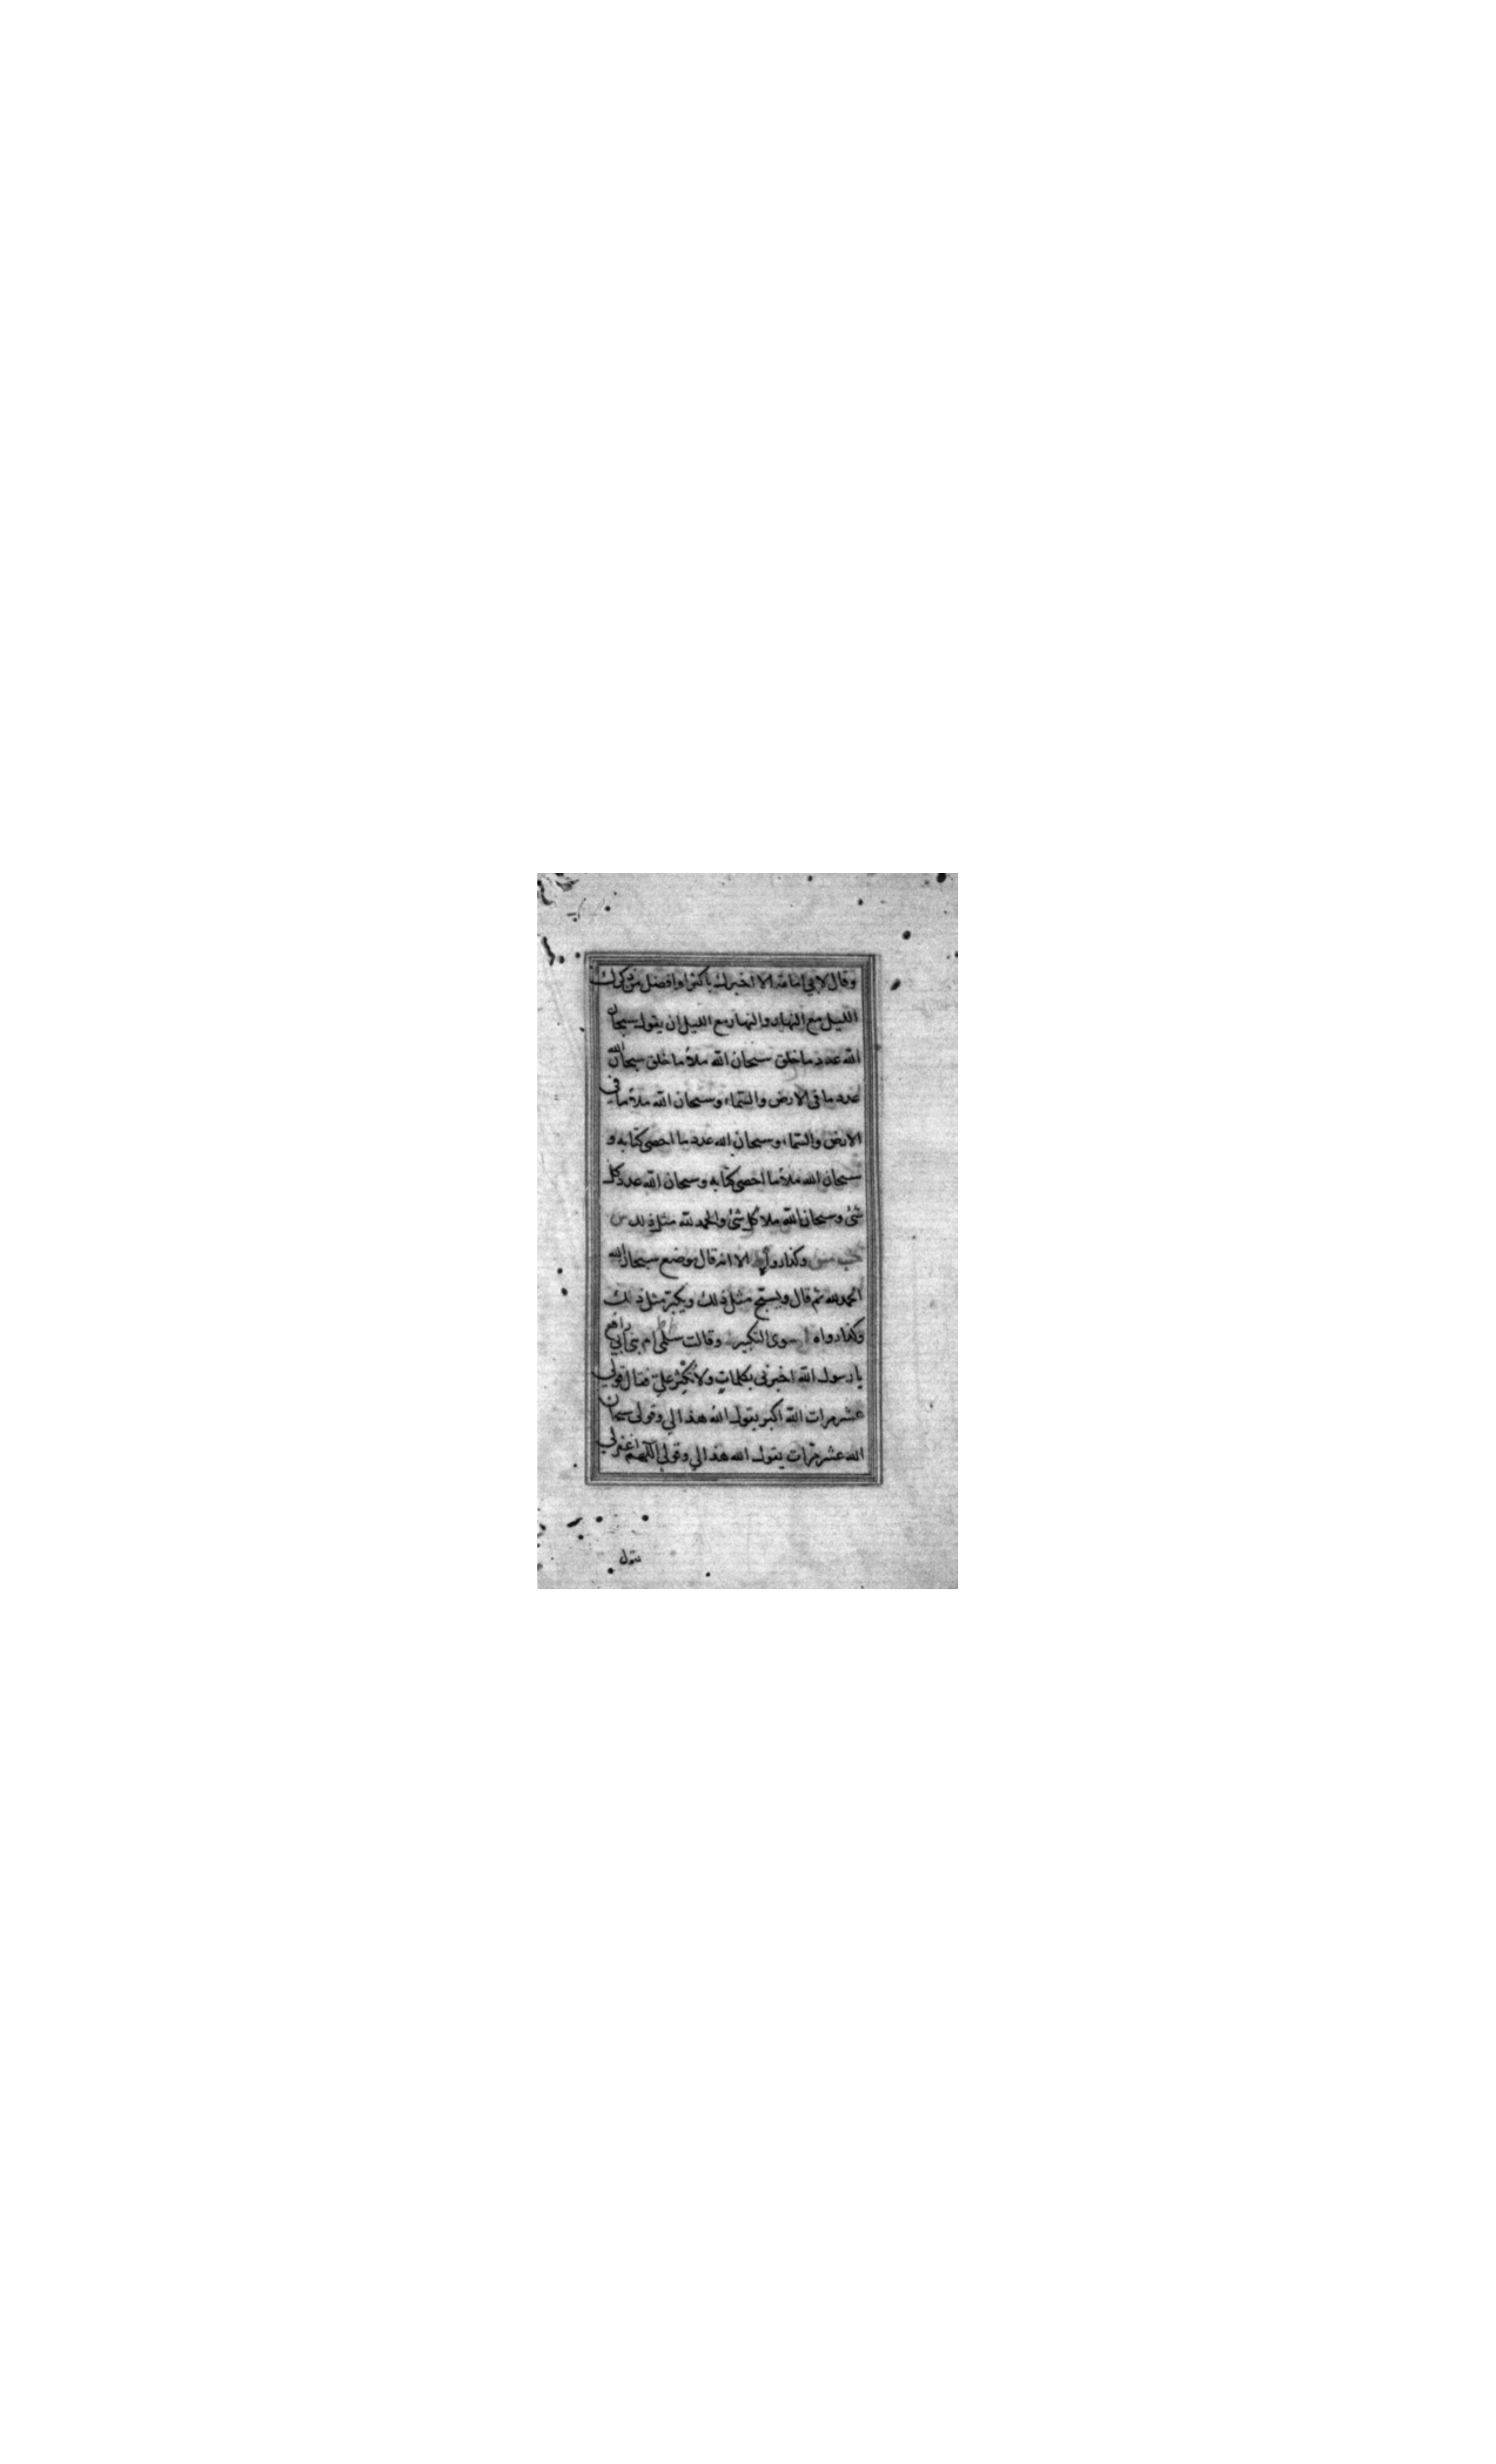 وقال لابي امامة الا اخبرك باكثر او افضل من ذكرك
الليل مع النهار والنهار مع الليل ان يقول سبحان
الله عدد ما خلق سبحان الله ملأ ما خلق سبحان الله
عدد ما في الارض والسماء وسبحان الله ملأ ما في
الارض والسماء وسبحان الله عدد ما احصى كتابه و
سبحان الله ملأ ما احصى كتابه وسبحان الله عدد كل
شئ وسبحان الله ملأ كل شئ والحمد لله مثل ذلك س
حب مس وكذا رواه ط الا انه قال موضع سبحان الله
الحمد لله ثم قال ويسبح مثل ذلك ويكبر مثل ذلك
وكذا رواه ا سوى التكبير وقالت سلمى ام بني ابي رافع
يا رسول الله اخبرني بكلمات ولا تكثر علي فقال قولي
عشر مرات الله اكبر يقول الله هذا لي وقولي سبحان
الله عشر مرات يقول الله هذا لي وقولي اللهم اغفر لي
يقول